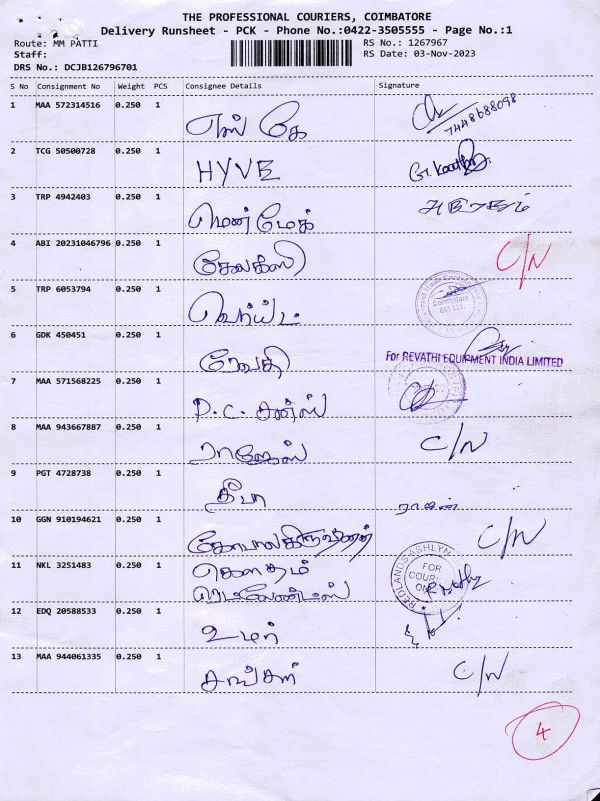 THE PROFESSIONAL COURIERS, COIMBATORE
Delivery Runsheet - PCK - Phone No.:0422-3505555 - Page No.:1
Route: MM PATTI RS No.: 1267967
Staff: RS Date: 03-Nov-2023
DRS No.: DCJB126796701
S No Consignment No Weight PCS Consignee Details Signature
1 MAA 572314516 0.250 1 எஸ் கே 7448688098
2 TCG 50500728 0.250 1 HYVE
3 TRP 4942403 0.250 1 மென் மேக்
4 ABI 20231046796 0.250 1 கேலக்ஸி C/N
5 TRP 6053794 0.250 1 Coimbatore 641 021
6 GDK 450451 0.250 1 ரேவதி
For REVATHI EQUIPMENT INDIA LIMITED
7 MAA 571568225 0.250 1 P.C. சன்ஸ்
8 MAA 943667887 0.250 1 ராஜேஸ் C/N
9 PGT 4728738 0.250 1 தீபா ராஜன்
10 GGN 910194621 0.250 1 கோபாலகிருஷ்ணன் C/N
11 NKL 3251483 0.250 1 கௌதம் REDLANDS ASHLYN FOR
ரெட்லேண்டஸ்
12 EDQ 20588533 0.250 1 உமர்
13 MAA 944061335 0.250 1 சங்கர் C/N
4